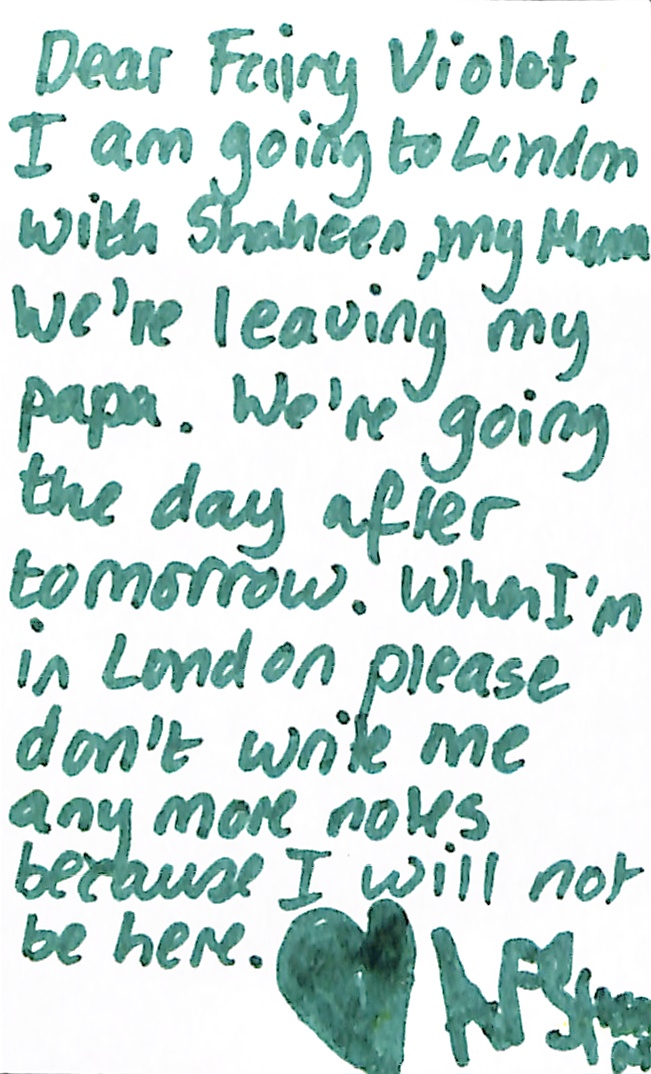 Dear Fairy Violet,
I am going to London
with Shaheen, my Mama
We're leaving my
papa. We're going
the day after
tomorrow. When I'm
in London please
don't write me
any more notes
because I will not
be here.